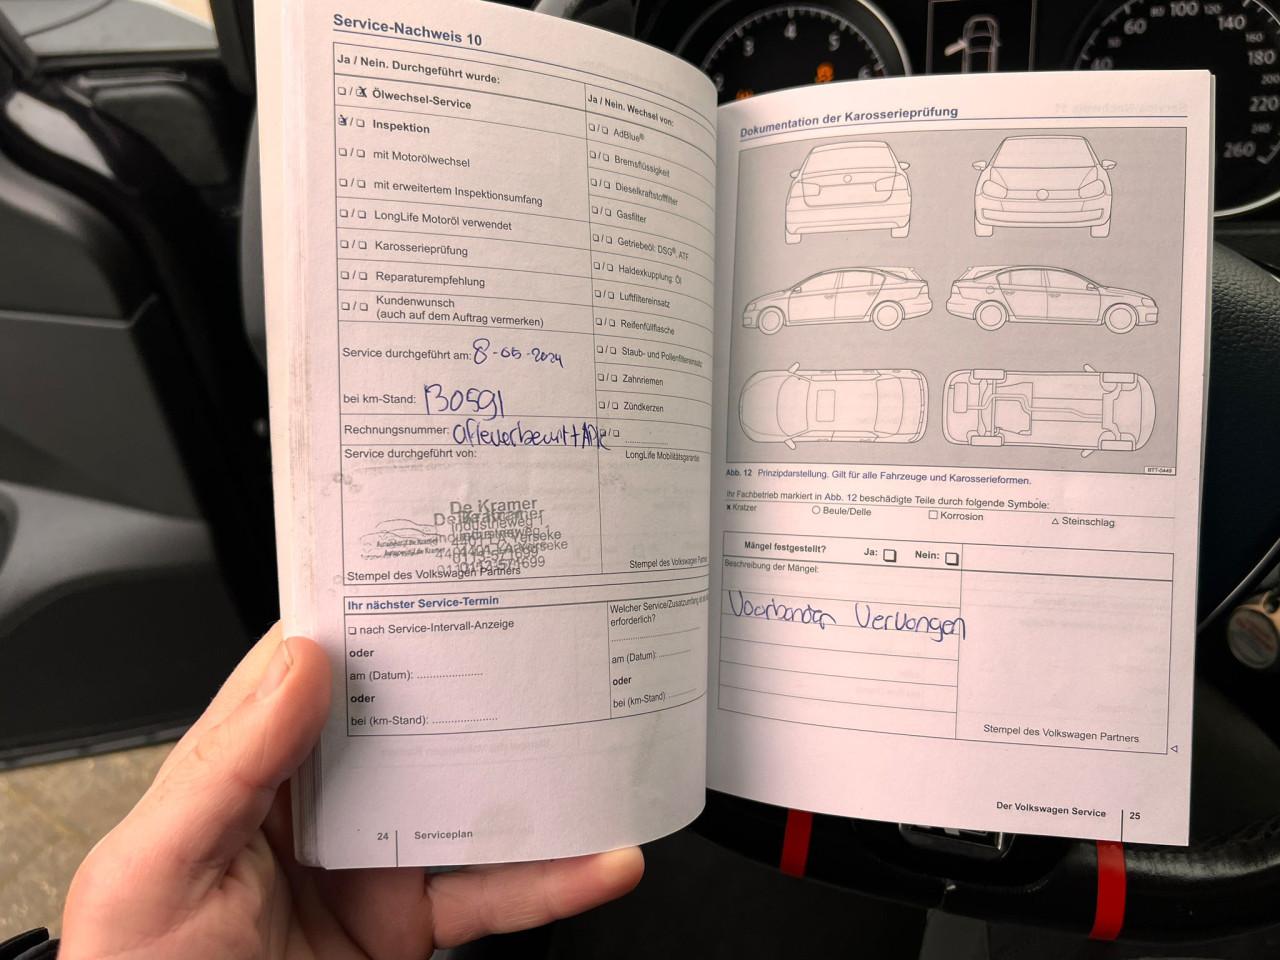 Service-Nachweis 10
Ja / Nein. Durchgeführt wurde:
❏ / ❏ Ölwechsel-Service
❏ / ❏ Inspektion
❏ / ❏ mit Motorölwechsel
❏ / ❏ mit erweitertem Inspektionsumfang
❏ / ❏ LongLife Motoröl verwendet
❏ / ❏ Karosserieprüfung
❏ / ❏ Reparaturempfehlung
❏ / ❏ Kundenwunsch
(auch auf dem Auftrag vermerken)
Service durchgeführt am: 8-05-2024
bei km-Stand: 130591
Rechnungsnummer:
Service durchgeführt von:
De Kramer
Industrieweg 1
Stempel des Volkswagen Partners
Ja / Nein. Wechsel von:
❏ / ❏ AdBlue®
❏ / ❏ Bremsflüssigkeit
❏ / ❏ Dieselkraftstofffilter
❏ / ❏ Gasfilter
❏ / ❏ Getriebeöl: DSG®, ATF
❏ / ❏ Haldexkupplung: Öl
❏ / ❏ Luftfiltereinsatz
❏ / ❏ Reifenfüllflasche
❏ / ❏ Staub- und Pollenfiltereinsatz
❏ / ❏ Zahnriemen
❏ / ❏ Zündkerzen
❏ / ❏ ....................
LongLife Mobilitätsgarantie
Stempel des Volkswagen
Ihr nächster Service-Termin
❏ nach Service-Intervall-Anzeige
oder
am (Datum): ....................
oder
bei (km-Stand): ....................
Welcher Service/Zusatzumfang
erforderlich?
am (Datum): ..........
oder
bei (km-Stand): ..........
24 Serviceplan
Dokumentation der Karosserieprüfung
BTT-0449
Abb. 12 Prinzipdarstellung. Gilt für alle Fahrzeuge und Karosserieformen.
Ihr Fachbetrieb markiert in Abb. 12 beschädigte Teile durch folgende Symbole:
× Kratzer ○ Beule/Delle □ Korrosion △ Steinschlag
Mängel festgestellt? Ja: ❏ Nein: ❏
Beschreibung der Mängel:
Voorbanden Vervangen
Stempel des Volkswagen Partners
Der Volkswagen Service 25
3 4 5
40 60 80 100 120 140 160 180 200 220 240 260